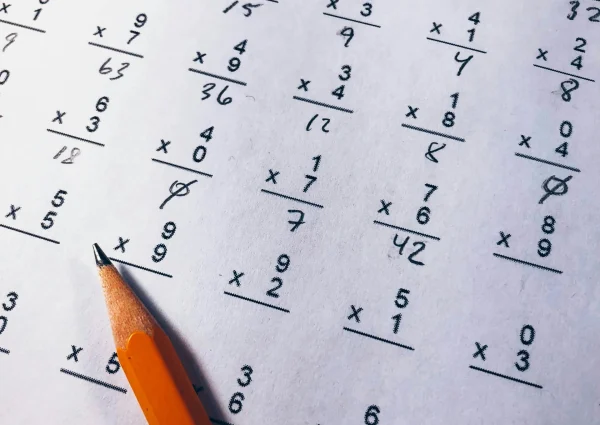 15 × 3 4 2 32
× 1 × 4
9 4 8
× 1 9 4 3 1 0
× 7 × 9 × 4 × 8 × 4
9 63 36 12 8 0
0 6 4 1 7 8
× 3 × 0 × 7 × 6 × 9
18 0 7 42
5 9 9 5 0
× 5 × 9 × 2 × 1 × 3
3 3 6
0 × 5 6